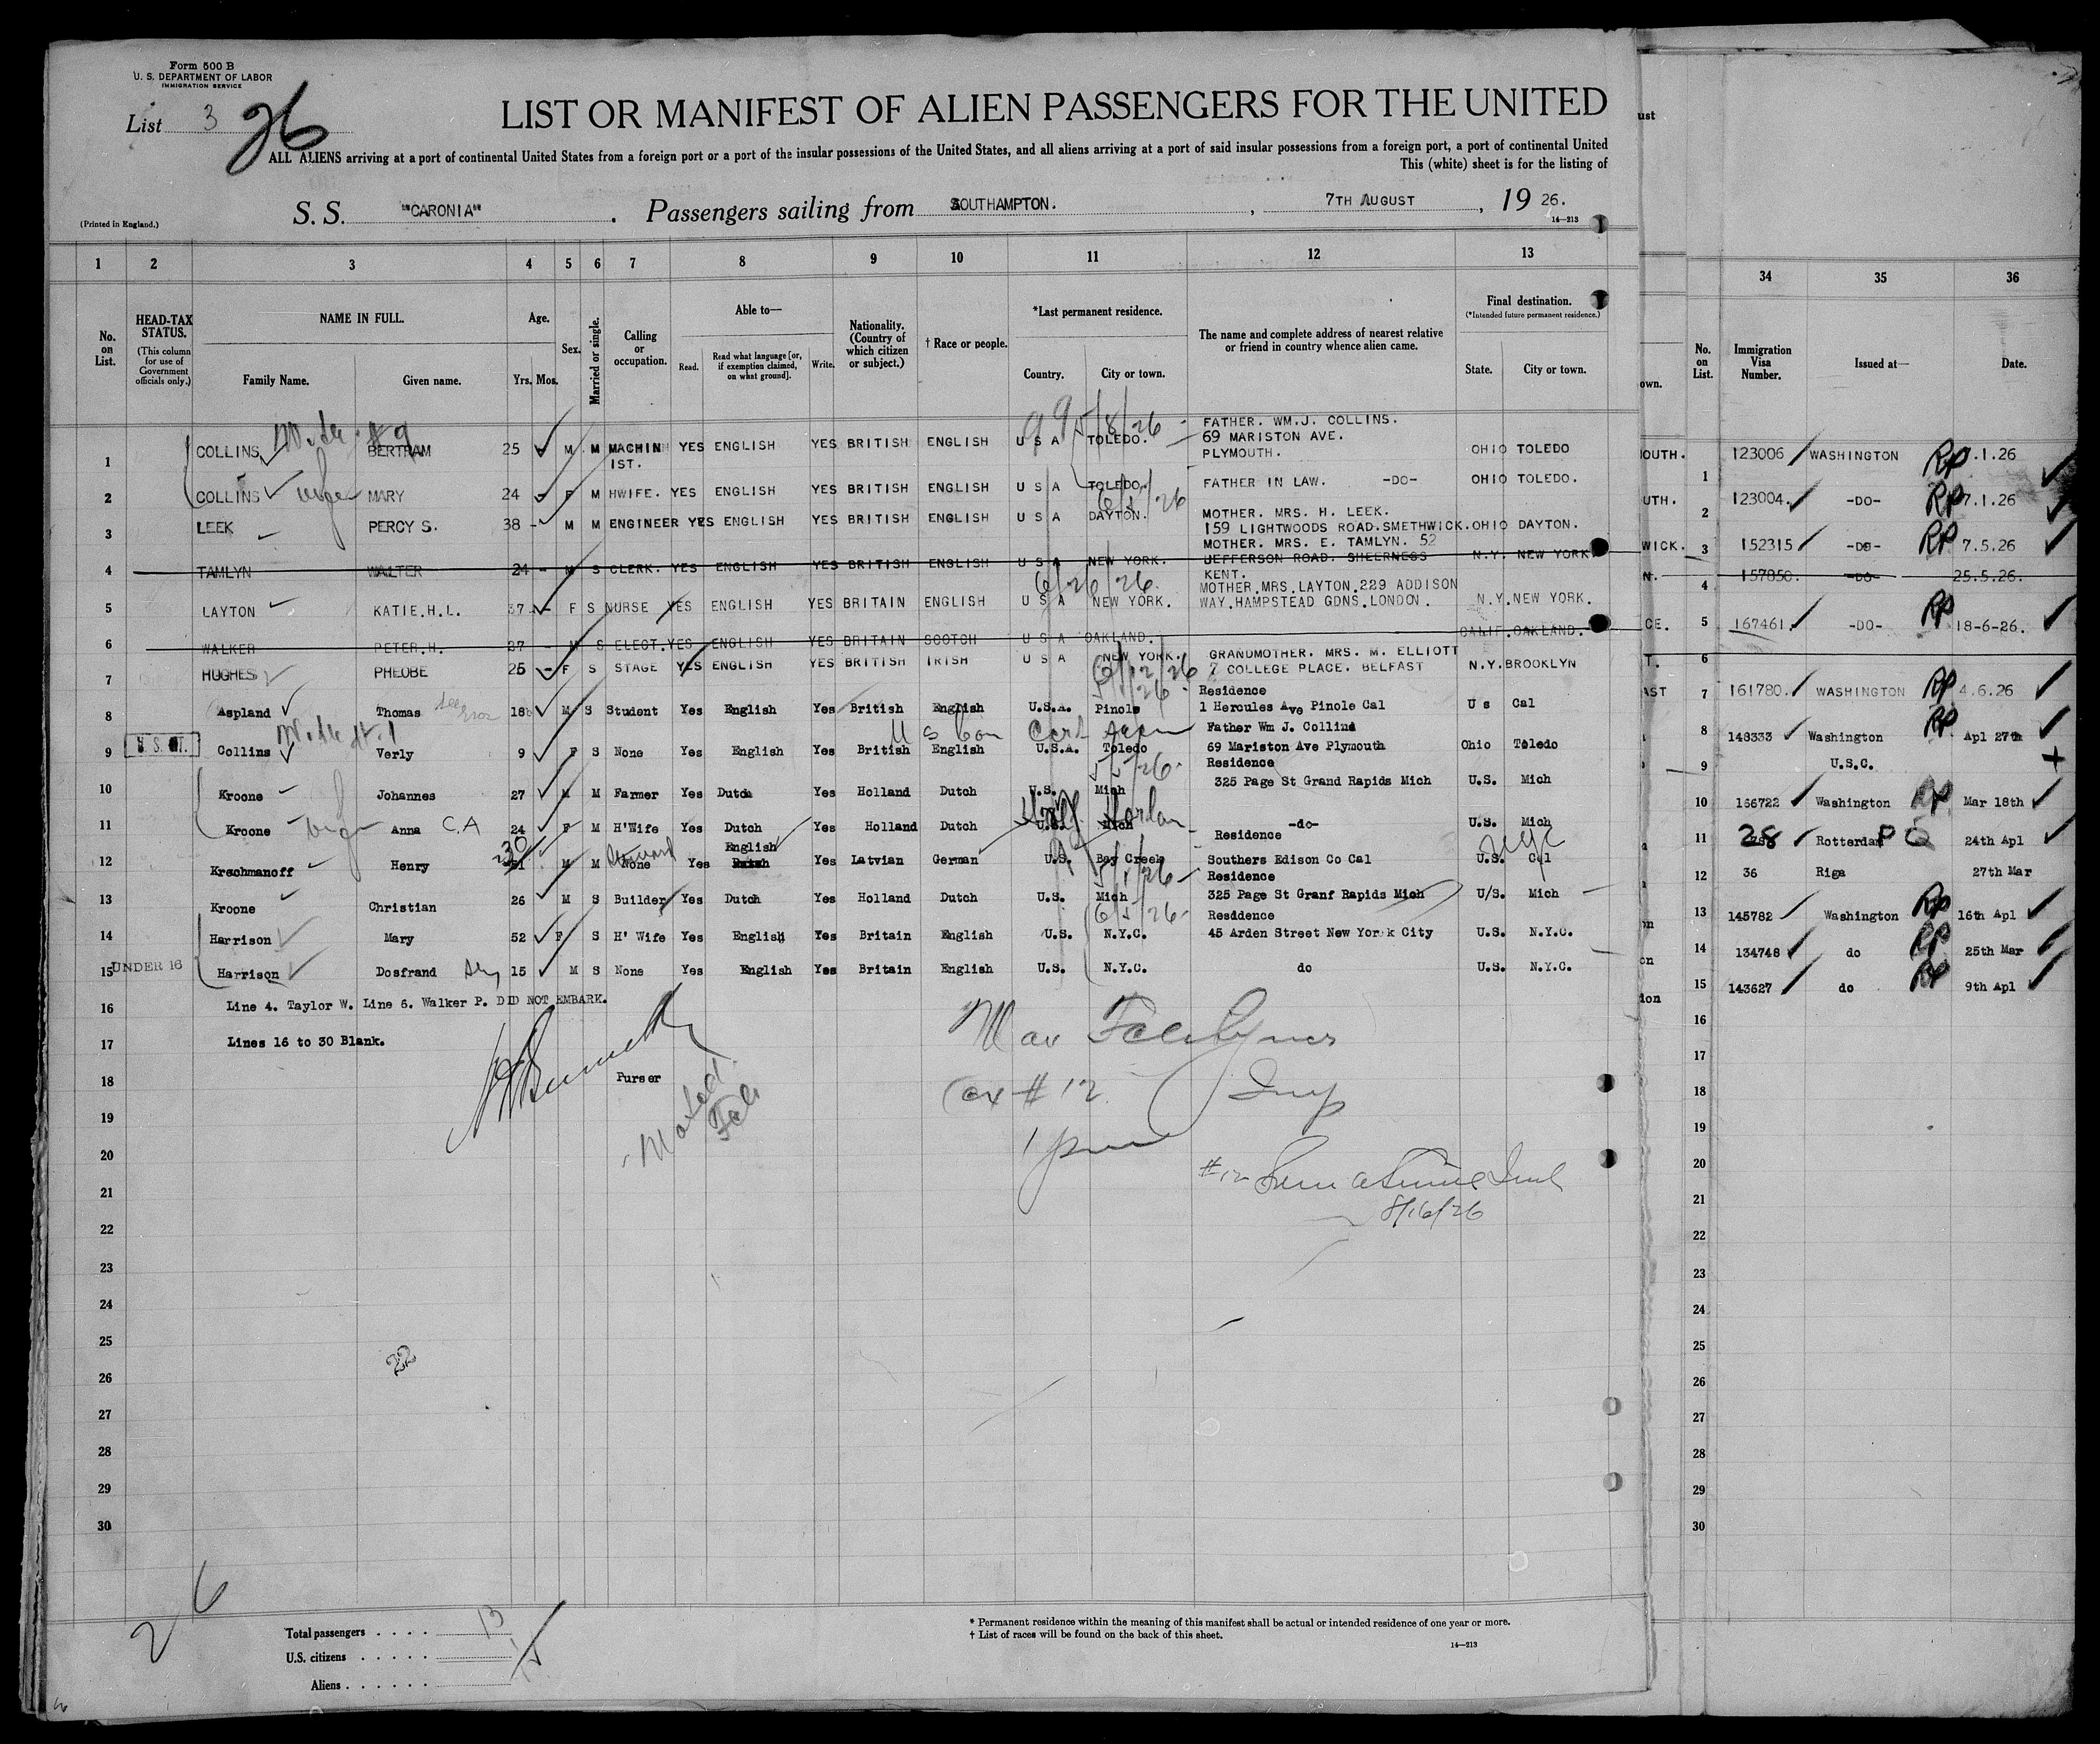 Form 500 B
U. S. DEPARTMENT OF LABOR
IMMIGRATION SERVICE
List 3
26
LIST OR MANIFEST OF ALIEN PASSENGERS FOR THE UNITED
ALL ALIENS arriving at a port of continental United States from a foreign port or a port of the insular possessions of the United States, and all aliens arriving at a port of said insular possessions from a foreign port, a port of continental United
This (white) sheet is for the listing of
(Printed in England.)
S. S. "CARONIA" . Passengers sailing from SOUTHAMPTON. , 7TH AUGUST , 19 26.
14—213
1 2 3 4 5 6 7 8 9 10 11 12 13
34 35 36
No. on List.
HEAD-TAX STATUS.
(This column for use of Government officials only.)
NAME IN FULL.
Family Name. Given name.
Age.
Yrs. Mos.
Sex.
Married or single.
Calling or occupation.
Able to—
Read. Read what language [or, if exemption claimed, on what ground]. Write.
Nationality. (Country of which citizen or subject.)
† Race or people.
*Last permanent residence.
Country. City or town.
The name and complete address of nearest relative or friend in country whence alien came.
Final destination.
(*Intended future permanent residence.)
State. City or town.
No. on List. Immigration Visa Number. Issued at— Date.
1 COLLINS BERTRAM 25 M M MACHINIST. YES ENGLISH YES BRITISH ENGLISH U S A TOLEDO. FATHER. WM.J. COLLINS. 69 MARISTON AVE. PLYMOUTH. OHIO TOLEDO
2 COLLINS MARY 24 - F M HWIFE. YES ENGLISH YES BRITISH ENGLISH U S A TOLEDO. FATHER IN LAW. -DO- OHIO TOLEDO.
3 LEEK PERCY S. 38 - M M ENGINEER YES ENGLISH YES BRITISH ENGLISH U S A DAYTON. MOTHER. MRS. H. LEEK. 159 LIGHTWOODS ROAD.SMETHWICK. OHIO DAYTON.
4 TAMLYN WALTER 24 - M S CLERK. YES ENGLISH YES BRITISH ENGLISH U S A NEW YORK. MOTHER. MRS. E. TAMLYN. 52 JEFFERSON ROAD. SHEERNESS KENT. N.Y. NEW YORK
5 LAYTON KATIE.H.L. 37 - F S NURSE YES ENGLISH YES BRITAIN ENGLISH U S A NEW YORK. MOTHER.MRS.LAYTON.229 ADDISON WAY.HAMPSTEAD GDNS.LONDON. N.Y. NEW YORK.
6 WALKER PETER.H. 27 - M S ELECT. YES ENGLISH YES BRITAIN SCOTCH U S A OAKLAND. CALIF. OAKLAND.
7 HUGHES PHEOBE 25 - F S STAGE YES ENGLISH YES BRITISH IRISH U S A NEW YORK. GRANDMOTHER. MRS. M. ELLIOTT 7 COLLEGE PLACE. BELFAST N.Y. BROOKLYN
8 Aspland Thomas 18 M S Student Yes English Yes British English U.S.A. Pinole Residence 1 Hercules Ave Pinole Cal U s Cal
9 Collins Verly 9 F S None Yes English Yes British English U.S.A. Toledo Father Wm J. Collins 69 Mariston Ave Plymouth Ohio Toledo
10 Kroone Johannes 27 M M Farmer Yes Dutch Yes Holland Dutch U.S. Mich Residence 325 Page St Grand Rapids Mich U.S. Mich
11 Kroone Anna C.A 24 F M H'Wife Yes Dutch Yes Holland Dutch U.S. Mich -do- U.S. Mich
12 Krechmanoff Henry 30 M M None Yes English Yes Latvian German U.S. Bay Creek Residence Southers Edison Co Cal U.S. Cal
13 Kroone Christian 26 M S Builder Yes Dutch Yes Holland Dutch U.S. Mich Residence 325 Page St Granf Rapids Mich U/S. Mich
14 Harrison Mary 52 F S H' Wife Yes English Yes Britain English U.S. N.Y.C. Residence 45 Arden Street New York City U.S. N.Y.C.
UNDER 16
15 Harrison Dosfrand 15 M S None Yes English Yes Britain English U.S. N.Y.C. do U.S. N.Y.C.
16 Line 4. Taylor W. Line 6. Walker P. DID NOT EMBARK.
17 Lines 16 to 30 Blank.
18 Purser
19
20
21
22
23
24
25
26
27
28
29
30
#12
8/16/26
22
1 123006 WASHINGTON RP 7.1.26
2 123004. -DO- RP 7.1.26
3 152315 -DO- RP 7.5.26
4 157850. -DO- 25.5.26.
5 167461. -DO- RP 18-6-26.
6
7 161780. WASHINGTON RP 4.6.26
8 148333 Washington RP Apl 27th
9 U.S.C.
10 166722 Washington RP Mar 18th
11 28 Rotterdam 24th Apl
12 36 Riga 27th Mar
13 145782 Washington RP 16th Apl
14 134748 do RP 25th Mar
15 143627 do RP 9th Apl
16
17
18
19
20
21
22
23
24
25
26
27
28
29
30
Total passengers . . . . 13
U.S. citizens . . . . .
Aliens . . . . . .
* Permanent residence within the meaning of this manifest shall be actual or intended residence of one year or more.
† List of races will be found on the back of this sheet.
14—213